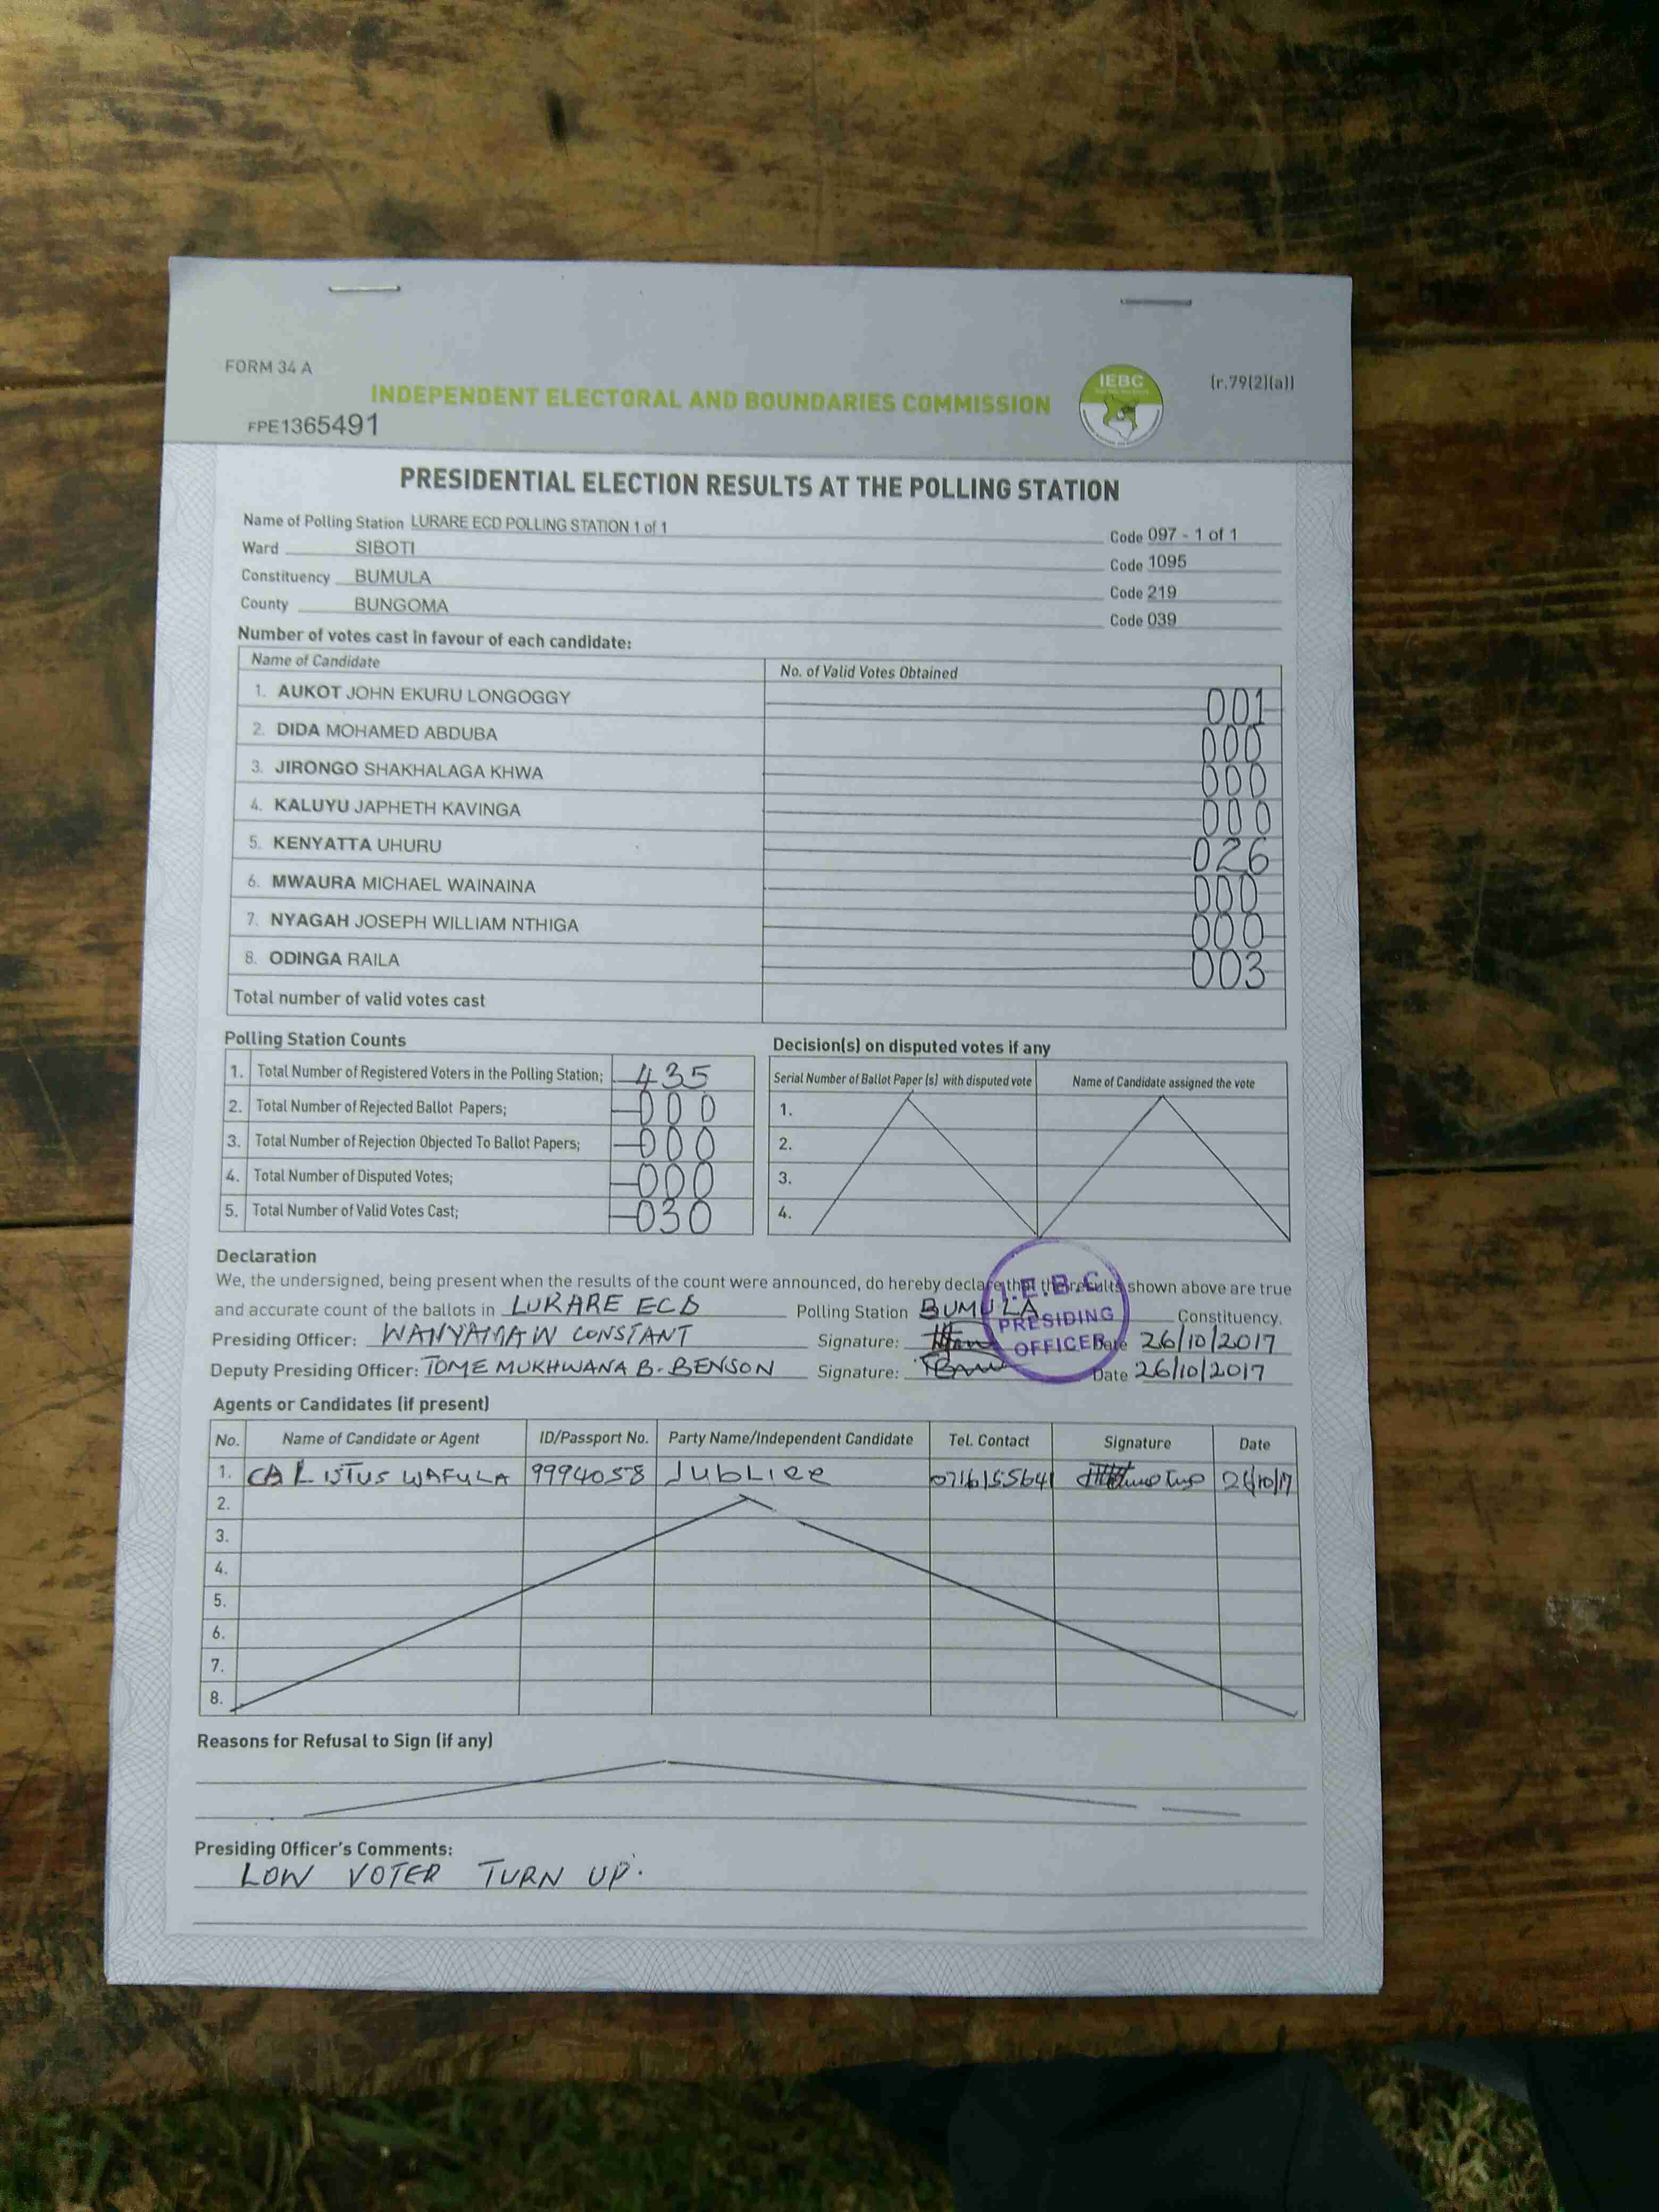 FORM 34 A
INDEPENDENT ELECTORAL AND BOUNDARIES COMMISSION
IEBC
(r.79(2)(a))
FPE1365491
PRESIDENTIAL ELECTION RESULTS AT THE POLLING STATION
Name of Polling Station LURARE ECD POLLING STATION 1 of 1 Code 097 - 1 of 1
Ward SIBOTI Code 1095
Constituency BUMULA Code 219
County BUNGOMA Code 039
Number of votes cast in favour of each candidate:
Name of Candidate No. of Valid Votes Obtained
1. AUKOT JOHN EKURU LONGOGGY 001
2. DIDA MOHAMED ABDUBA 000
3. JIRONGO SHAKHALAGA KHWA 000
4. KALUYU JAPHETH KAVINGA 000
5. KENYATTA UHURU 026
6. MWAURA MICHAEL WAINAINA 000
7. NYAGAH JOSEPH WILLIAM NTHIGA 000
8. ODINGA RAILA 003
Total number of valid votes cast
Polling Station Counts
1. Total Number of Registered Voters in the Polling Station; 435
2. Total Number of Rejected Ballot Papers; 000
3. Total Number of Rejection Objected To Ballot Papers; 000
4. Total Number of Disputed Votes; 000
5. Total Number of Valid Votes Cast; 030
Decision(s) on disputed votes if any
Serial Number of Ballot Paper (s) with disputed vote Name of Candidate assigned the vote
1.
2.
3.
4.
Declaration
We, the undersigned, being present when the results of the count were announced, do hereby declare that the results shown above are true
and accurate count of the ballots in LURARE ECD Polling Station BUMULA Constituency.
Presiding Officer: WANYAMA W CONSTANT Signature: Date 26/10/2017
Deputy Presiding Officer: TOME MUKHWANA B. BENSON Signature: Date 26/10/2017
I.E.B.C
PRESIDING
OFFICER
Agents or Candidates (if present)
No. Name of Candidate or Agent ID/Passport No. Party Name/Independent Candidate Tel. Contact Signature Date
1. CALISTUS WAFULA 9994058 JubLiee 0716155641 26/10/17
2.
3.
4.
5.
6.
7.
8.
Reasons for Refusal to Sign (if any)
Presiding Officer's Comments:
LOW VOTER TURN UP.